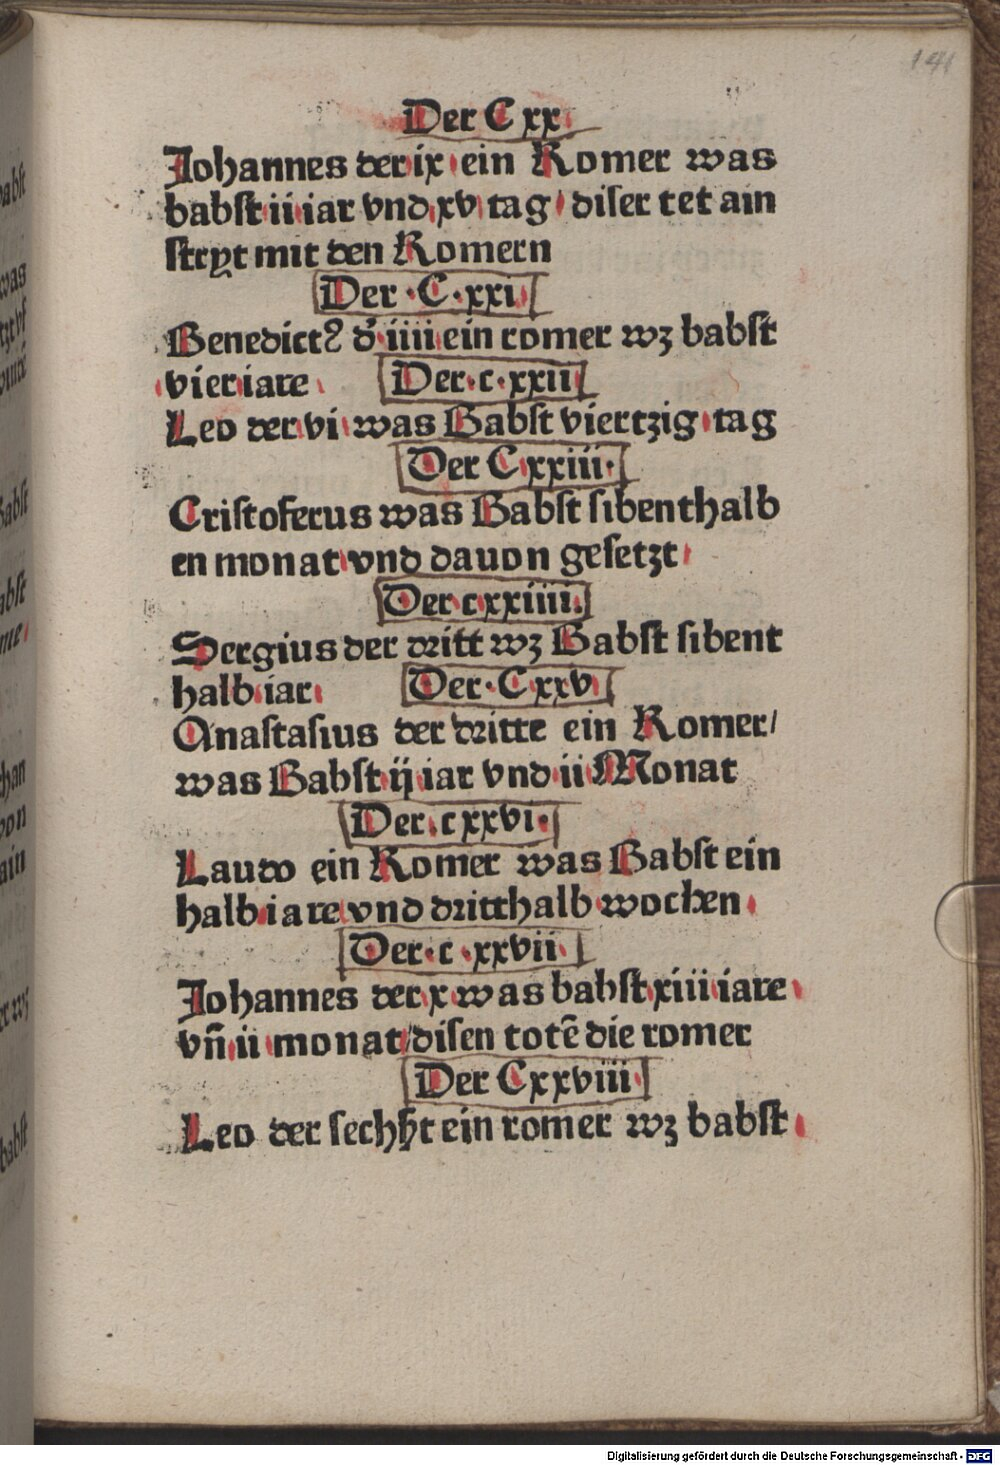 141
Der C xx
Johannes der ix ein Romer was
babſt ii iar vnd xv tag / diſer tet ain
ſtryt mit den Romern
Der · C · xxi
Benedictꝰ d᷑ iiii ein romer wz babſt
vier iare Der · c · xxii
Leo der vi was Babſt viertzig tag
Der C xxiii ·
Criſtoferus was Babſt ſibenthalb
en monat vnd dauon geſetzt
Der cxxiiii.
Sergius der dritt wz Babſt ſibent
halb iar Der · C xxv
Anaſtaſius der dritte ein Romer /
was Babſt ij iar vnd ii Monat
Der . cxxvi ·
Laudo ein Romer was Babſt ein
halb iare vnd dritthalb wochen
Der · c · xxvii
Johannes der x was babſt xiii iare
vñ ii monat / diſen totē die romer
Der Cxxviii
Leo der ſechſt ein romer wz babſt
Digitalisierung gefördert durch die Deutsche Forschungsgemeinschaft - DFG